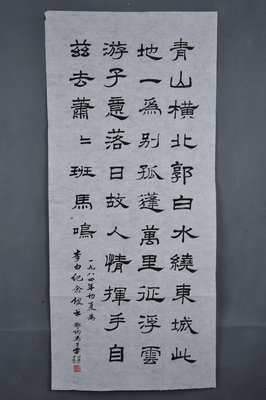 青山橫北郭白水繞東城此
地一為別孤蓬萬里征浮雲
游子意落日故人情揮手自
茲去蕭〻班馬鳴
一九八四年初夏為
李白紀念館書